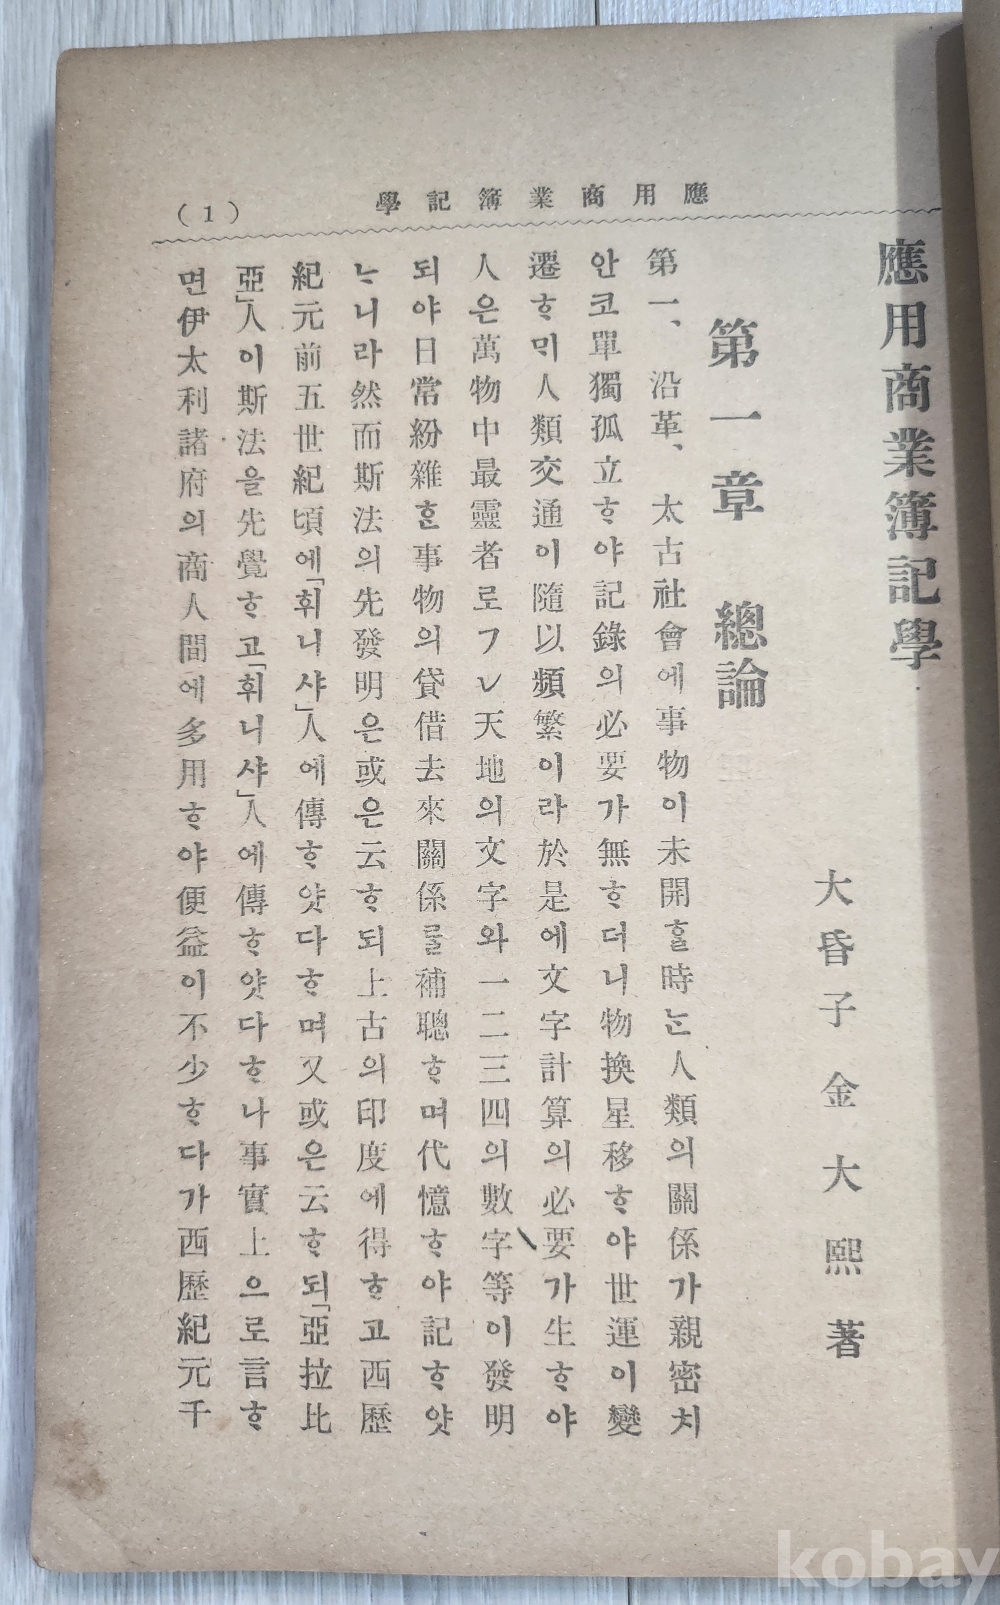 應用商業簿記學
(1)
應用商業簿記學
大昏子 金大熙 著
第一章 總論
第一、沿革、太古社會에事物이未開ᄒᆞᆯ時ᄂᆞᆫ人類의關係가親密치
안코單獨孤立ᄒᆞ야記錄의必要가無ᄒᆞ더니物換星移ᄒᆞ야世運이變
遷ᄒᆞᄆᆡ人類交通이隨以頻繁이라於是에文字計算의必要가生ᄒᆞ야
人은萬物中最靈者로ㄱㄴ天地의文字와一二三四의數字等이發明
되야日常紛雜ᄒᆞᆫ事物의貸借去來關係를補聰ᄒᆞ며代憶ᄒᆞ야記ᄒᆞ얏
ᄂᆞ니라然而斯法의先發明은或은云ᄒᆞ되上古의印度에得ᄒᆞ고西歷
紀元前五世紀頃에「휘니샤」人에傳ᄒᆞ얏다ᄒᆞ며又或은云ᄒᆞ되「亞拉比
亞」人이斯法을先覺ᄒᆞ고「휘니샤」人에傳ᄒᆞ얏다ᄒᆞ나事實上으로言ᄒᆞ
면伊太利諸府의商人間에多用ᄒᆞ야便益이不少ᄒᆞ다가西歷紀元千
kobay